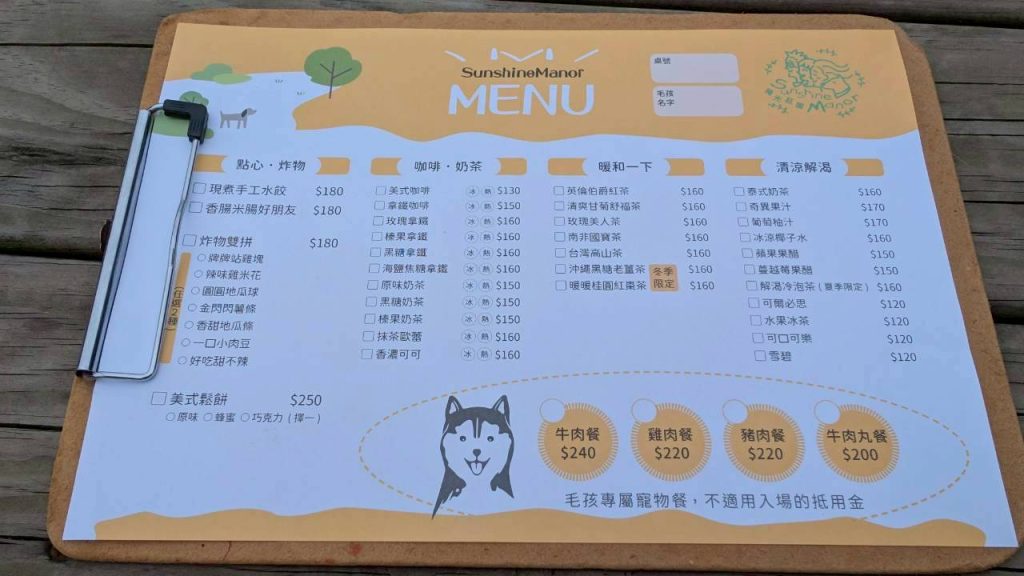 SunshineManor
MENU
桌號
毛孩
名字
Sunshine
Manor
點心・炸物
現煮手工水餃 $180
香腸米腸好朋友 $180
炸物雙拼 $180
(任選2種)
牌牌站雞塊
辣味雞米花
圓圓地瓜球
金閃閃薯條
香甜地瓜條
一口小肉豆
好吃甜不辣
美式鬆餅 $250
原味 蜂蜜 巧克力 (擇一)
咖啡・奶茶
美式咖啡 冰 熱 $130
拿鐵咖啡 冰 熱 $150
玫瑰拿鐵 冰 熱 $160
榛果拿鐵 冰 熱 $160
黑糖拿鐵 冰 熱 $160
海鹽焦糖拿鐵 冰 熱 $160
原味奶茶 冰 熱 $150
黑糖奶茶 冰 熱 $150
榛果奶茶 冰 熱 $150
抹茶歐蕾 冰 熱 $160
香濃可可 冰 熱 $160
暖和一下
英倫伯爵紅茶 $160
清爽甘菊舒福茶 $160
玫瑰美人茶 $160
南非國寶茶 $160
台灣高山茶 $160
沖繩黑糖老薑茶 $160
暖暖桂圓紅棗茶 $160
冬季
限定
清涼解渴
泰式奶茶 $160
奇異果汁 $170
葡萄柚汁 $170
冰涼椰子水 $160
蘋果果醋 $150
蔓越莓果醋 $150
解渴冷泡茶 (夏季限定) $160
可爾必思 $120
水果冰茶 $120
可口可樂 $120
雪碧 $120
牛肉餐
$240
雞肉餐
$220
豬肉餐
$220
牛肉丸餐
$200
毛孩專屬寵物餐，不適用入場的抵用金